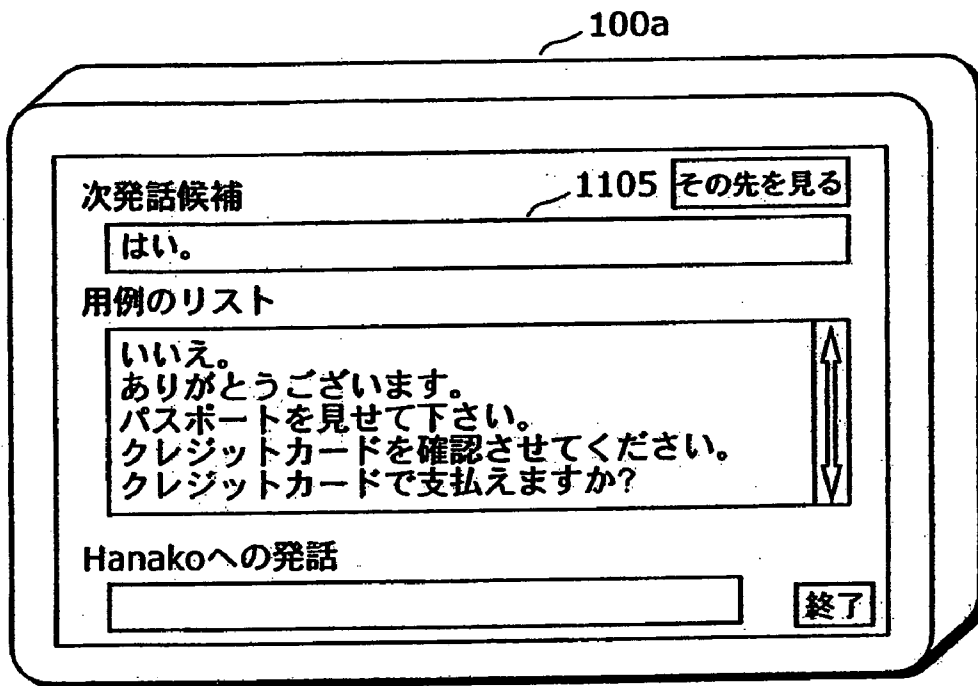 100a
次発話候補
1105
その先を見る
はい。
用例のリスト
いいえ。
ありがとうございます。
パスポートを見せて下さい。
クレジットカードを確認させてください。
クレジットカードで支払えますか?
Hanakoへの発話
終了